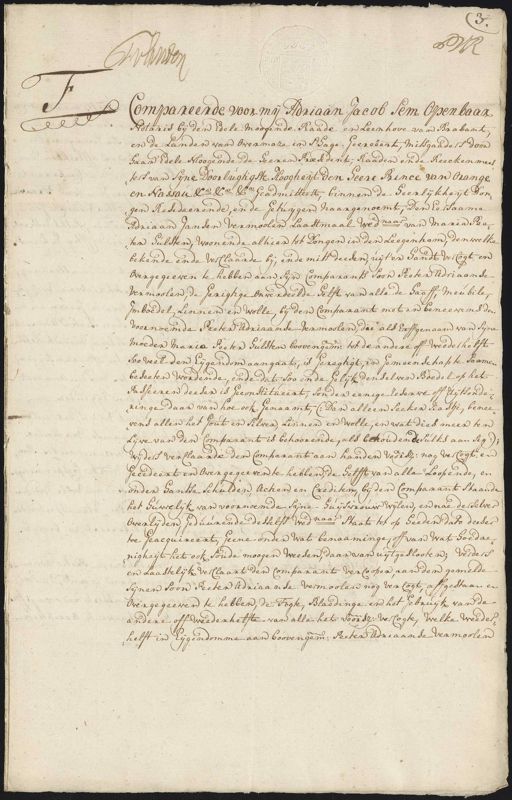 3.
F
Compareerde voor mij Adriaan Jacob Sem Openbaar
Notaris bij den Edele Mogende Raade en Leenhove van Brabant,
en de Landen van Overmaze in 's Hage. Geresideert, mitsgaders door
haar Edele Hoogende de Heeren President, Raaden ende Reekenmees
ters van Syne Doorluchtighste Hoogheyt den Heere Prince van Orange
en Nassau &ca &ca &ca Geadmitteert, binnen de Heerlijkheyt Don
gen Resideerende, ende Getuygen naargenoemt, Den Eersaame
Adriaan Jansen Vermoolen Laastmaal Weduwnaar van Maria Pee
ter Gulsten, wonende alhier tot Dongen in den Leegenham, denwelke
bekende ende verclaarde bij ende mits deesen uyt er handt vercogt en
overgegeven te hebben aan Syn Comparants Soon Peeter Adriaanse
Vermoolen de Geregtige onverdeelde helft van alle de Haaff, Meubile,
Imboedel, Linnen en Wolle, bij den Comparant met en beneevens den
voornoemde Peeter Adriaanse Vermoolen, die als Erffgenaam van Syne
Moeder Maria Peeter Gulsten boovengemt tot de andere off weederhelft
Soo veel den Eygendom aangaat, is Geregtigt, in Gemeenschap te saamen
beseeten wordende, ende dat soo ende gelijk den selven Boedel op het
Passeeren deeser is Geconstitueert, sonder eenige reserve off uytsonde
ringe daar van hoe ook Genaamt, (Dan alleen Seeker Kastje, benee
vens allen het Gout en Silver, Linnen en Wolle, en wat dies meer ten
Lyve van den Comparant is behoorende, als behoudende sulks aan Sig);
wijders verclaarde den Comparant aan handen voors: nog vercogt en
Gecedeert en overgegeven te hebben de helfft van alle Loopende, en
onder Gansse Schulden, Acten en Crediten, bij den Comparant staande
het Huwelijk van voornoemde Syne Huysvrouw wylen, en nae deselver
Overlijden geduurende desselfs Wed:naars Staat tot op heeden dato deeser
toe Geacquireert, geene onder wat benaaminge, off van wat Hoeda
nigheyt het ook soude moogen weesen, daar van uytgeslooten; Wijders
en Laastelijk verclaart den Comparant vercooper aan den gemelde
Synen Soon Peeter Adriaanse Vermoolen nog vercogt, affgestaan en
Overgegeven te hebben, de Togte, Bladinge en het Gebruyk van de
andere off weederhelfte van alle het voors: vercogte, welke weeder
helfft in Eygendomme aan boovengem: Peeter Adriaanse Vermoolen